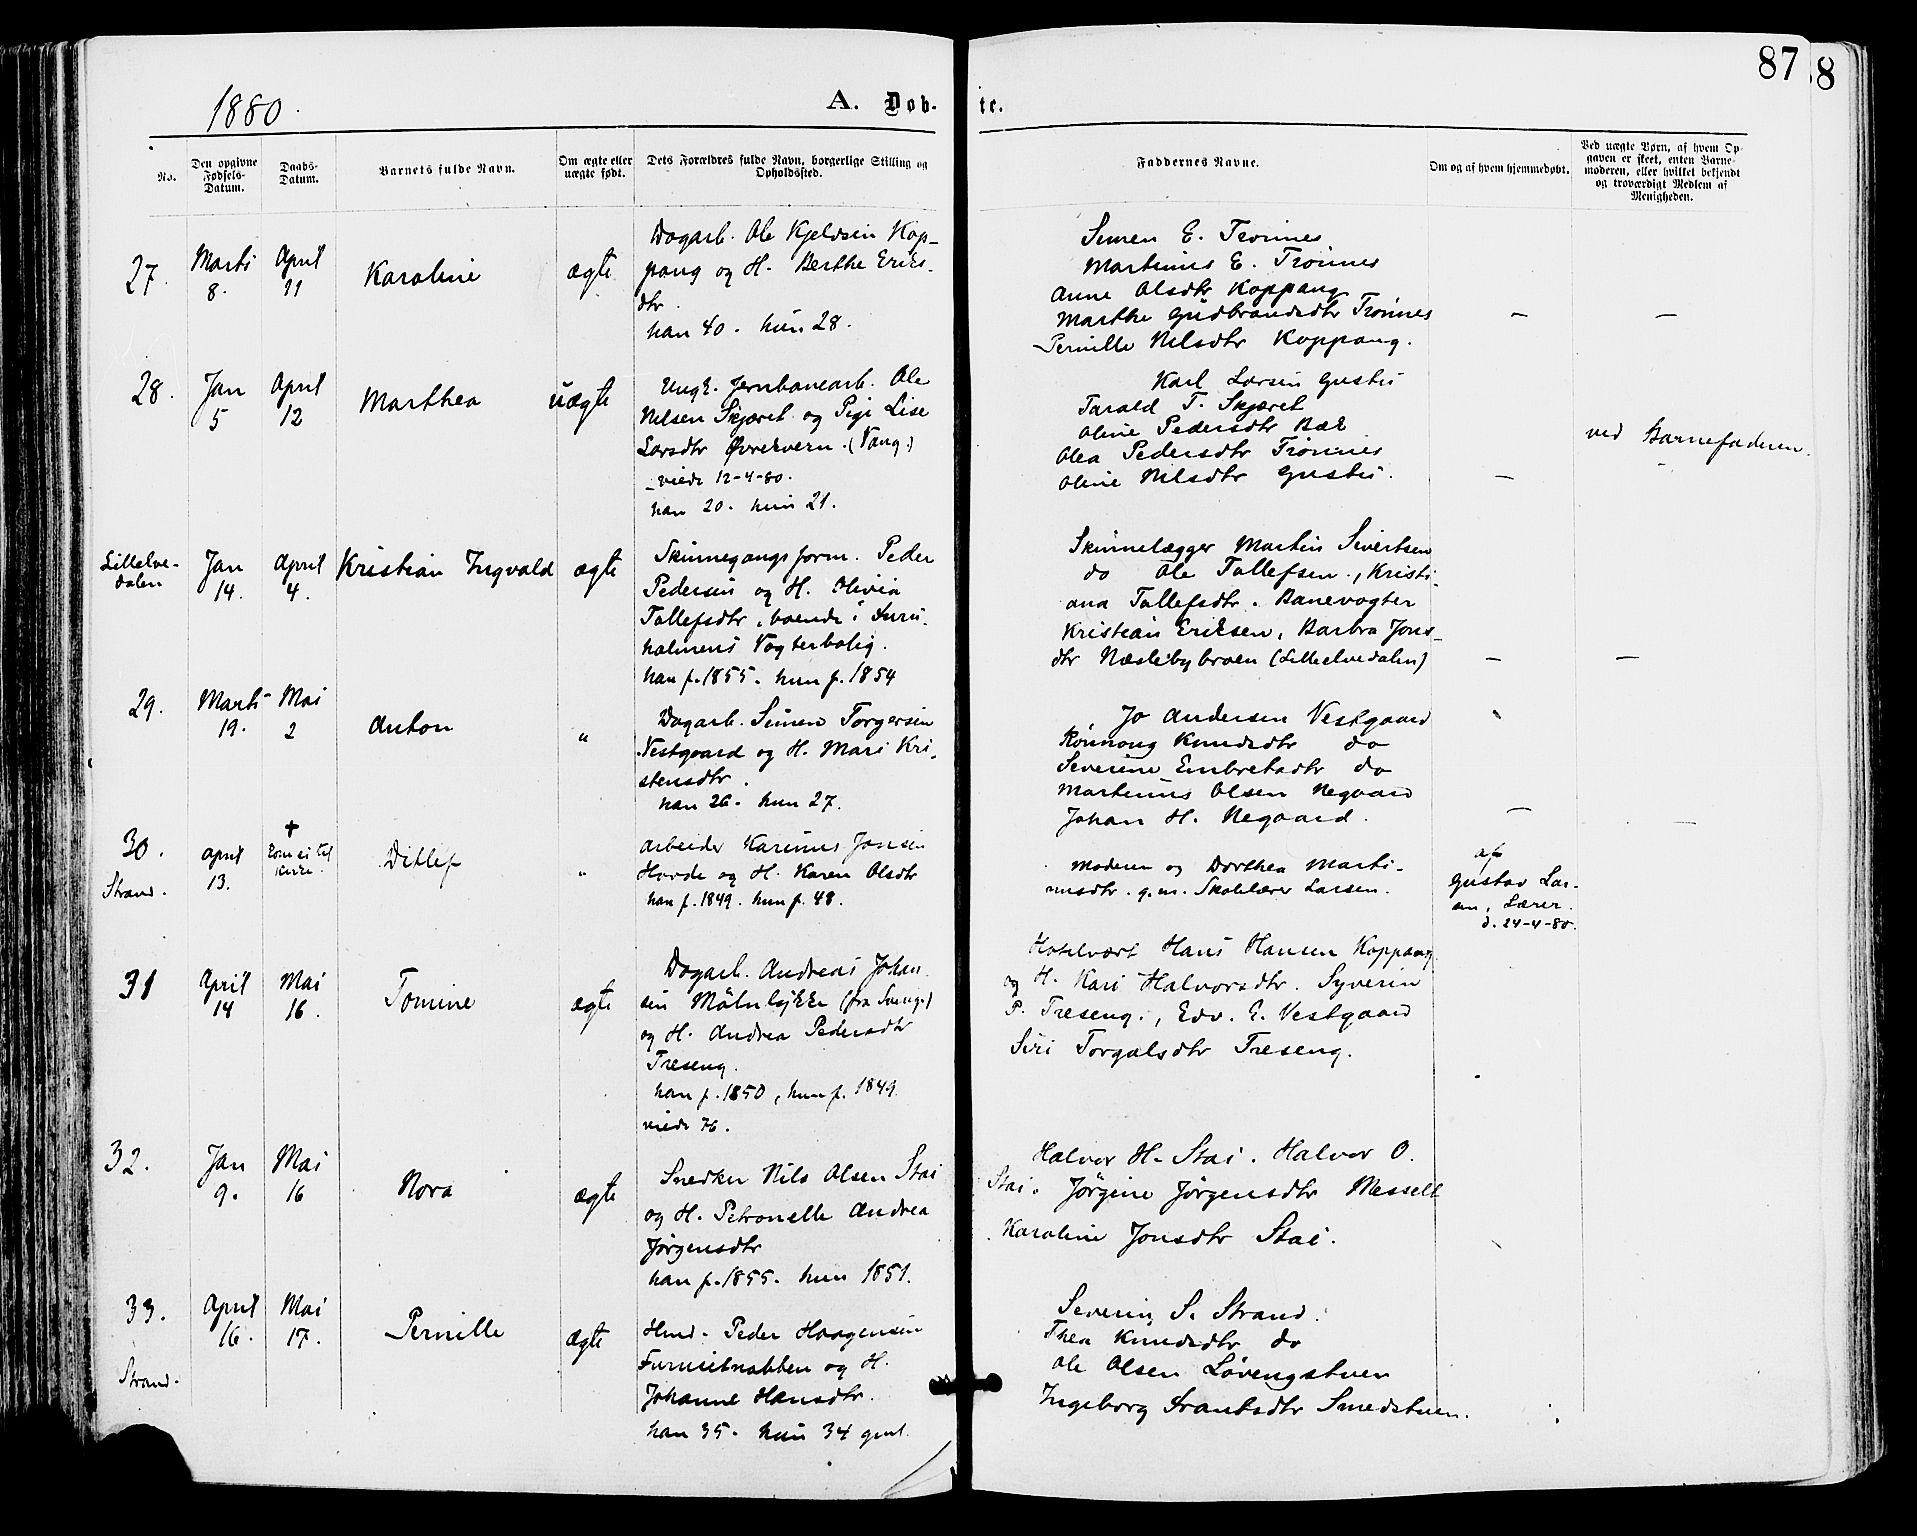 87
8
1880.
A. Døb-
te.
No.
Den opgivne
Fødsels-
Datum.
Daabs-
Datum.
Barnets fulde Navn.
Om ægte eller
uægte født.
Dets Forældres fulde Navn, borgerlige Stilling og
Opholdssted.
Faddernes Navne.
Om og af hvem hjemmedøbt.
Ved uægte Børn, af hvem Op-
gaven er skeet, enten Barne-
moderen, eller hvilket bekjendt
og troværdigt Medlem af
Menigheden.
27.
Marts
8.
April
11
Karoline
ægte
Dagarb. Ole Kjeldsen Kop-
pang og H. Berthe Eriks-
dtr.
han 40. hun 28.
Simen E. Trønnes
Martinus E. Trønnes
Anne Olsdtr Koppang
Marthe Gudbrandsdtr Trønnes
Pernille Nilsdtr Koppang.
–
–
28.
Jan
5
April
12
Marthea
uægte
Ungk. Jernbanearb. Ole
Nilsen Skjæret og Pige Lise
Larsdtr Øvrekvern. (Vang.)
– viede 12-4-80.
han 20. hun 21.
Karl Larsen
Tarald T. Skjæret
Oline Pedersdtr Bæk
Olea Pedersdtr Trønnes
Oline Nilsdtr
–
ved Barnefaderen.
Lillelve-
dalen
Jan
14.
April
4.
Kristian Ingvald
ægte
Skinnegangsform. Peder
Pedersen og H. Olivia
Tollefsdtr, boende i Furu-
holmens Vogterbolig.
han f. 1855. hun f. 1854
Skinnelægger Martin Sivertsen
do Ole Tollefsen, Kristi-
ana Tollefsdtr. Banevogter
Kristian Eriksen, Barbro Jons-
dtr Næstebybroen (Lilleelvedalen)
–
–
29.
Marts
19.
Mai
2
Anton
"
Dagarb. Simen Torgersen
Vestgaard og H. Mari Kri-
stensdtr.
han 26. hun 27.
Jo Andersen Vestgaard
Rønnaug Knudsdtr do
Severine Embretsdtr do
Martinus Olsen Negaard
Johan H. Negaard.
–
–
30.
Strand.
April
13.
†
kom ei til
Kirke.
Ditlef
"
Arbeider Karinus Jonsen
Horde og H. Karen Olsdtr
han f. 1849. hun f. 48.
Moderen og Dorthea Marti-
nusdtr. g.m. Skolelærer Larsen.
af
Gustav Lar-
sen, Lærer.
d. 24-4-80.
31
April
14
Mai
16.
Tomine
ægte
Dagarb. Andreas Johan-
sen Mölnlykke (fra Sverige)
og H. Andrea Pedersdtr
Treseng.
han f. 1850, hun f. 1849
viede 76.
Hotelvært Hans Hansen Koppang
og H. Kari Halvorsdtr. Syverin
P. Treseng., Edv. E. Vestgaard
Siri Torgalsdtr Treseng.
32.
Jan
9.
Mai
16
Nora
ægte
Snedker Nils Olsen Stai
og H. Petronelle Andrea
Jørgensdtr
han f. 1855. hun 1851.
Halvor H. Stai. Halvor O.
Stai. Jørgine Jørgensdtr Messelt
Karoline Jonsdtr Stai.
33.
Strand.
April
16.
Mai
17.
Pernille
ægte
Hmd. Peder Haagensen
Furusetnabben og H.
Johanne Hansdtr.
han 35. hun 34 gml.
Severin S. Strand.
Thea Knudsdtr do
Ole Olsen Løvengstuen
Ingeborg Frantsdtr Smedstuen.